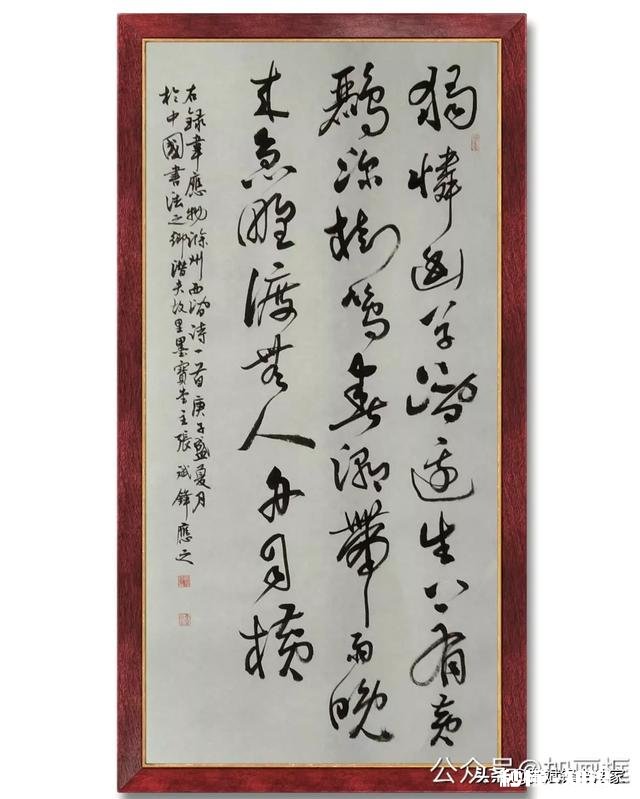 獨憐幽草澗邊生上有黃
鸝深樹鳴春潮帶雨晚
來急野渡無人舟自橫
右錄韋應物滁州西澗詩一首庚子盛夏月
於中國書法之鄉潛夫故里墨寶堂主張斌鋒應之
公众号 加画框